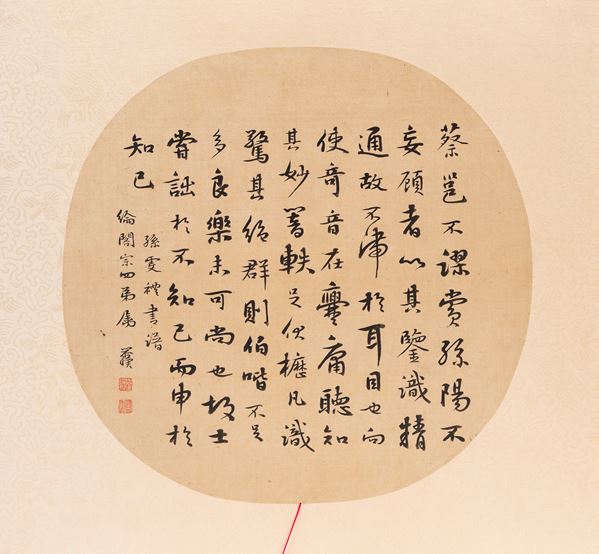 蔡邕不謬賞孫陽不
妄顧者以其鑒識精
通故不滯於耳目也向
使奇音在爨庸聽知
其妙響軼足伏櫪凡識
驚其絕群則伯喈不足
多良樂未可尚也故士
嘗詘於不知己而申於
知己
孫虔禮書譜
綸閣宗四弟屬